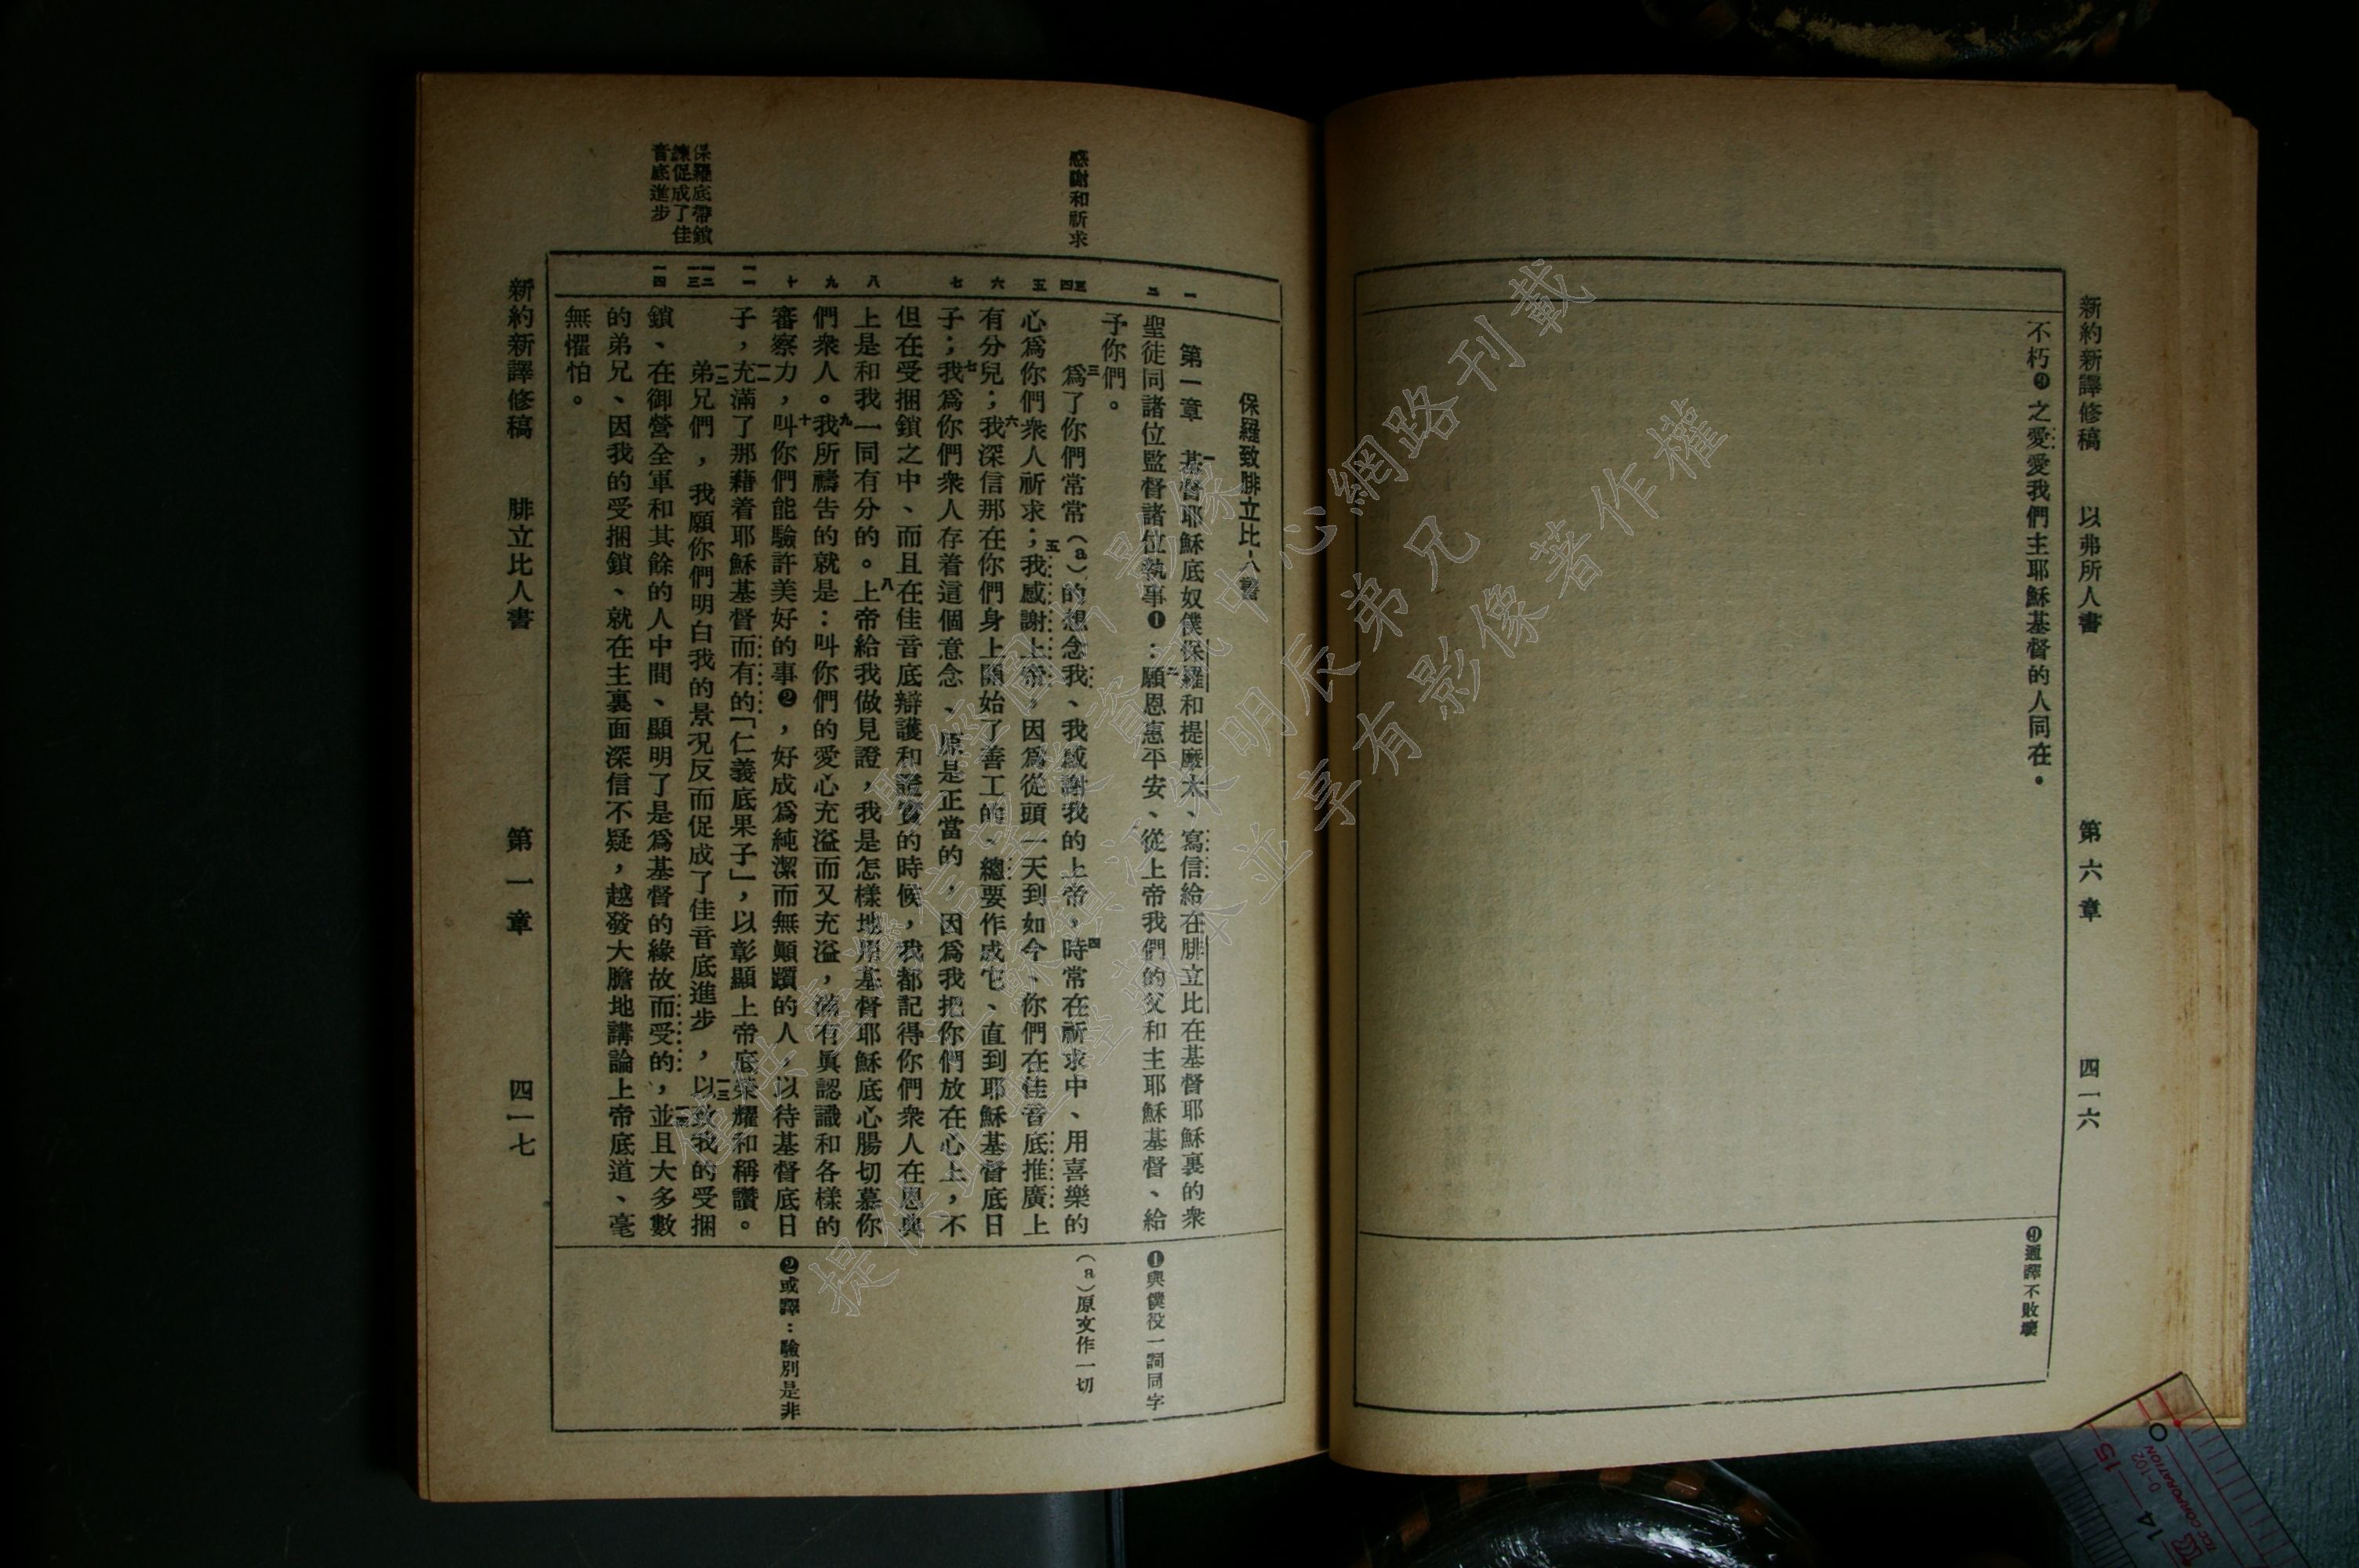 新約新譯修稿　以弗所人書　第六章　四一六
不朽❾之愛愛我們主耶穌基督的人同在。
❾通譯不敗壞
保羅致腓立比人書
第一章　一基督耶穌底奴僕保羅和提摩太、寫信給在腓立比在基督耶穌裏的衆
聖徒同諸位監督諸位執事❶：二願恩惠平安、從上帝我們的父和主耶穌基督、給
予你們。
三爲了你們常常(a)的想念我、我感謝我的上帝，四時常在祈求中、用喜樂的
心爲你們衆人祈求；五我感謝上帝，因爲從頭一天到如今、你們在佳音底推廣上
有分兒；六我深信那在你們身上開始了善工的、總要作成它、直到耶穌基督底日
子；七我爲你們衆人存着這個意念、原是正當的，因爲我把你們放在心上，不
但在受捆鎖之中、而且在佳音底辯護和證實的時候，我都記得你們衆人在恩典
上是和我一同有分的。八上帝給我做見證，我是怎樣地用基督耶穌底心腸切慕你
們衆人。九我所禱告的就是：叫你們的愛心充溢而又充溢，滿有眞認識和各樣的
審察力，十叫你們能驗許美好的事❷，好成爲純潔而無顚躓的人，以待基督底日
子，一一充滿了那藉着耶穌基督而有的「仁義底果子」，以彰顯上帝底榮耀和稱讚。
一二弟兄們，我願你們明白我的景況反而促成了佳音底進步，一三以致我的受捆
鎖、在御營全軍和其餘的人中間、顯明了是爲基督的緣故而受的，一四並且大多數
的弟兄、因我的受捆鎖、就在主裏面深信不疑，越發大膽地講論上帝底道、毫
無懼怕。
一
二
三
四
五
六
七
八
九
十
一一
一二
一三
一四
感謝和祈求
保羅底帶鎖
鍊促成了佳
音底進步
❶與僕役一詞同字
(a)原文作一切
❷或譯：驗別是非
新約新譯修稿　腓立比人書　第一章　四一七
聖經圖片影像
僅供臺灣信望愛資訊中心網路刊載
江蘇鎮江朱明辰弟兄
提供聖經藏本並享有影像著作權
15
14
0